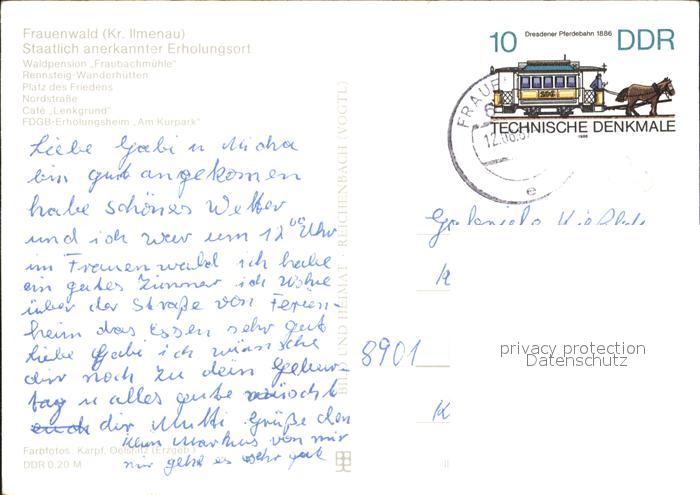 Frauenwald (Kr. Ilmenau)
Staatlich anerkannter Erholungsort
Waldpension „Fraubachmühle"
Rennsteig-Wanderhütten
Platz des Friedens
Nordstraße
Café „Lenkgrund"
FDGB-Erholungsheim „Am Kurpark"
Liebe Gabi u Micha
bin gut angekomen
habe schönes Wetter
und ich war um 12 00 Uhr
im Frauenwald ich habe
ein gutes Zimmer ich wohne
über der Straße von Ferien-
heim das Essen sehr gut
Liebe Gabi ich wünsche
dir noch zu dein Gebur-
tag u alles gute wünscht
dir Mutti Grüße den
klein Markus von mir
mir geht es sehr gut
Farbfotos: Karpf, Oelsnitz (Erzgeb.)
DDR 0,20 M
BILD UND HEIMAT · REICHENBACH (VOGTL)
10 Dresdener Pferdebahn 1886 DDR
TECHNISCHE DENKMALE
1986
FRAUE
12.08.8
e
8901
K
K
privacy protection
Datenschutz